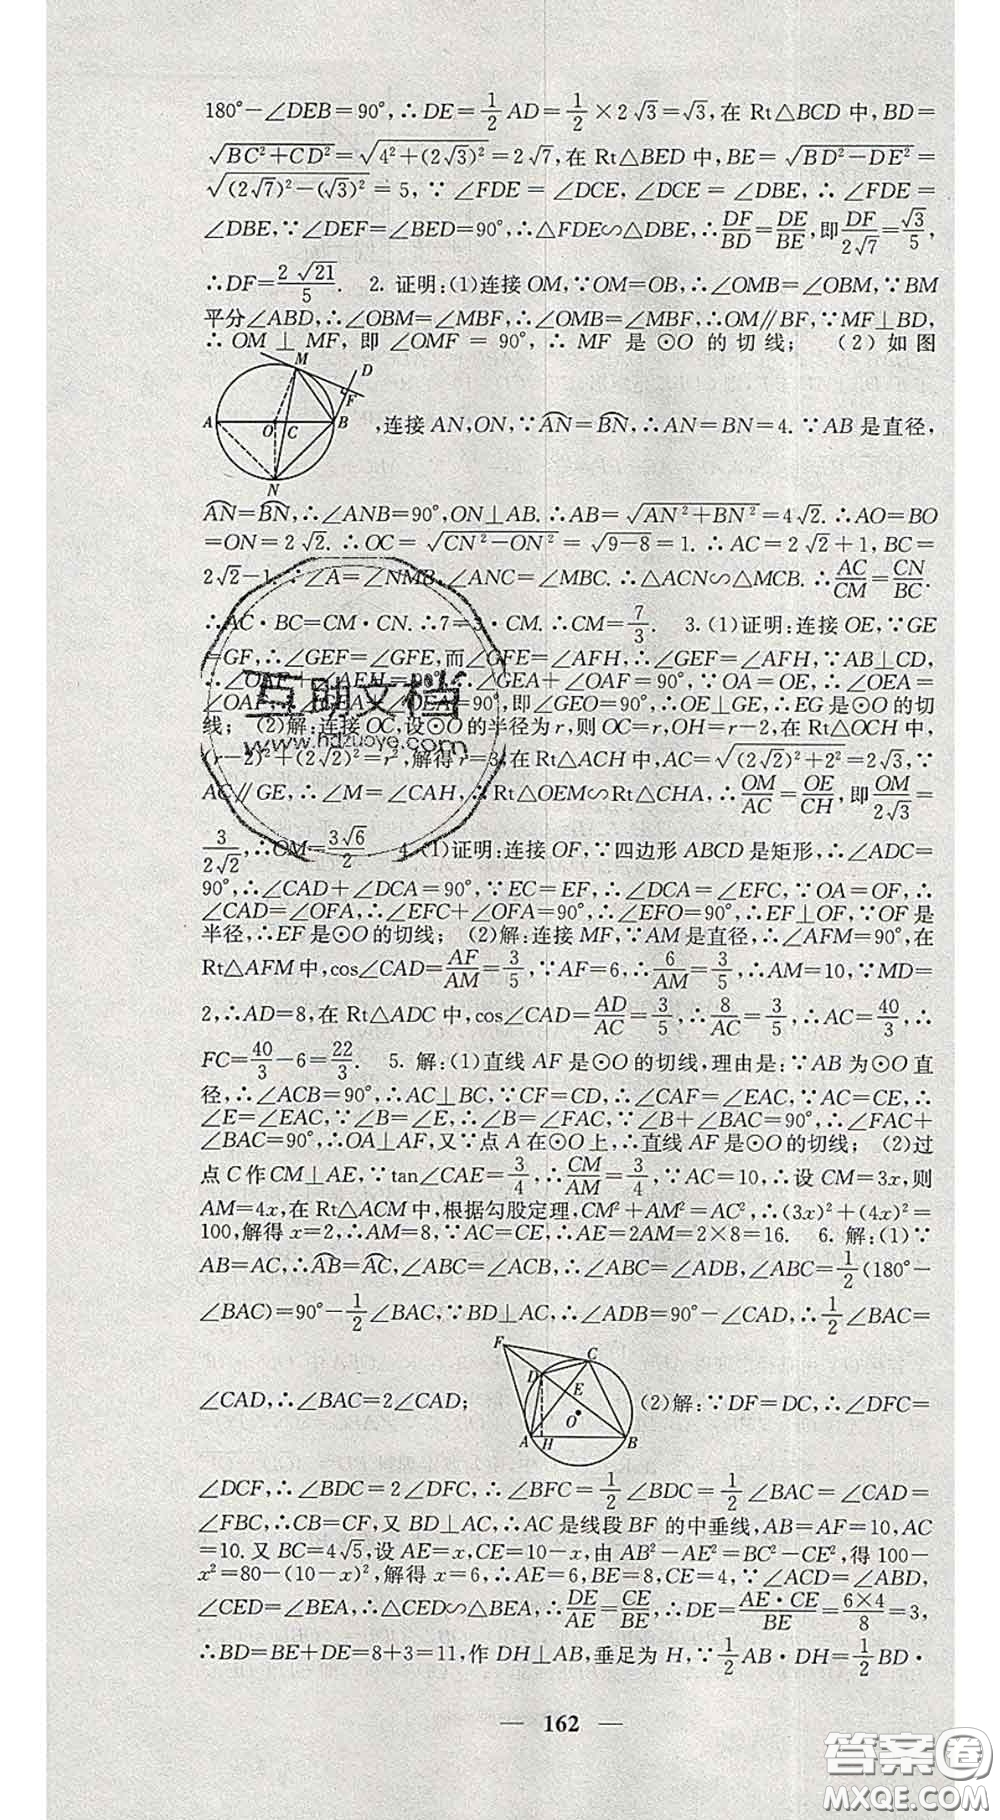 180°−∠DEB=90°,∴DE=1/2 AD=1/2×2√3=√3,在 Rt△BCD 中,BD=
√(BC²+CD²)=√(4²+(2√3)²)=2√7,在 Rt△BED 中,BE=√(BD²−DE²)=
√((2√7)²−(√3)²)=5,∵∠FDE=∠DCE,∠DCE=∠DBE,∴∠FDE=
∠DBE,∵∠DEF=∠BED=90°,∴△FDE∽△DBE,∴DF/BD=DE/BE,即DF/2√7=√3/5,
∴DF=2√21/5. 2. 证明:(1)连接 OM,∵OM=OB,∴∠OMB=∠OBM,∵BM
平分∠ABD,∴∠OBM=∠MBF,∴∠OMB=∠MBF,∴OM∥BF,∵MF⊥BD,
∴OM⊥MF,即∠OMF=90°,∴MF 是⊙O 的切线; (2)如图
M D F A O C B N
,连接 AN,ON,∵AN=BN,∴AN=BN=4.∵AB 是直径,
AN=BN,∴∠ANB=90°,ON⊥AB.∴AB=√(AN²+BN²)=4√2.∴AO=BO
=ON=2√2.∴OC=√(CN²−ON²)=√(9−8)=1.∴AC=2√2+1,BC=
2√2−1.∵∠A=∠NMB,∠ANC=∠MBC.∴△ACN∽△MCB.∴AC/CM=CN/BC.
∴AC·BC=CM·CN.∴7=3·CM.∴CM=7/3. 3.(1)证明:连接 OE,∵GE
=GF,∴∠GEF=∠GFE,而∠GFE=∠AFH,∴∠GEF=∠AFH,∵AB⊥CD,
∴∠OAF+∠AFH=90°,∴∠GEA+∠OAF=90°,∵OA=OE,∴∠OEA=
∠OAF,∴∠GEA+∠OEA=90°,即∠GEO=90°,∴OE⊥GE,∴EG 是⊙O 的切
线; (2)解:连接 OC,设⊙O 的半径为 r,则 OC=r,OH=r−2,在 Rt△OCH 中,
(r−2)²+(2√2)²=r²,解得 r=3,在 Rt△ACH 中,AC=√((2√2)²+2²)=2√3,∵
AC∥GE,∴∠M=∠CAH,∴Rt△OEM∽Rt△CHA,∴OM/AC=OE/CH,即OM/2√3=
3/2√2,∴OM=3√6/2. 4.(1)证明:连接 OF,∵四边形 ABCD 是矩形,∴∠ADC=
90°,∴∠CAD+∠DCA=90°,∵EC=EF,∴∠DCA=∠EFC,∵OA=OF,∴
∠CAD=∠OFA,∴∠EFC+∠OFA=90°,∴∠EFO=90°,∴EF⊥OF,∵OF 是
半径,∴EF 是⊙O 的切线; (2)解:连接 MF,∵AM 是直径,∴∠AFM=90°,在
Rt△AFM 中,cos∠CAD=AF/AM=3/5,∵AF=6,∴6/AM=3/5,∴AM=10,∵MD=
2,∴AD=8,在 Rt△ADC 中,cos∠CAD=AD/AC=3/5,∴8/AC=3/5,∴AC=40/3,∴
FC=40/3−6=22/3. 5. 解:(1)直线 AF 是⊙O 的切线,理由是:∵AB 为⊙O 直
径,∴∠ACB=90°,∴AC⊥BC,∵CF=CD,∴∠CAF=∠EAC,∵AC=CE,∴
∠E=∠EAC,∵∠B=∠E,∴∠B=∠FAC,∵∠B+∠BAC=90°,∴∠FAC+
∠BAC=90°,∴OA⊥AF,又∵点 A 在⊙O 上,∴直线 AF 是⊙O 的切线; (2)过
点 C 作 CM⊥AE,∵tan∠CAE=3/4,∴CM/AM=3/4,∵AC=10,∴设 CM=3x,则
AM=4x,在 Rt△ACM 中,根据勾股定理,CM²+AM²=AC²,∴(3x)²+(4x)²=
100,解得 x=2,∴AM=8,∵AC=CE,∴AE=2AM=2×8=16. 6. 解:(1)∵
AB=AC,∴AB=AC,∠ABC=∠ACB,∴∠ABC=∠ADB,∠ABC=1/2(180°−
∠BAC)=90°−1/2∠BAC,∵BD⊥AC,∴∠ADB=90°−∠CAD,∴1/2∠BAC=
∠CAD,∴∠BAC=2∠CAD;
F C D E O A H B
(2)解:∵DF=DC,∴∠DFC=
∠DCF,∴∠BDC=2∠DFC,∴∠BFC=1/2∠BDC=1/2∠BAC=∠CAD=
∠FBC,∴CB=CF,又 BD⊥AC,∴AC 是线段 BF 的中垂线,AB=AF=10,AC
=10.又 BC=4√5,设 AE=x,CE=10−x,由 AB²−AE²=BC²−CE²,得 100−
x²=80−(10−x)²,解得 x=6,∴AE=6,BE=8,CE=4,∵∠ACD=∠ABD,
∠CED=∠BEA,∴△CED∽△BEA,∴DE/AE=CE/BE,∴DE=AE·CE/BE=6×4/8=3,
∴BD=BE+DE=8+3=11,作 DH⊥AB,垂足为 H,∵1/2AB·DH=1/2BD·
— 162 —
互助文档
www.hdzuoye.com
答案圈
MXQE.COM